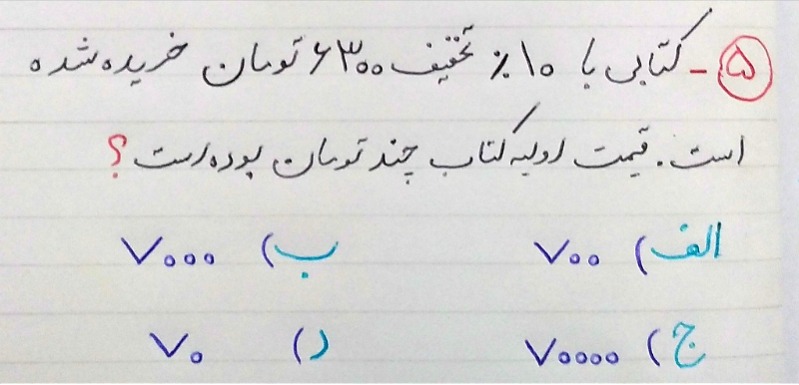 ۵- کتابی با ۱۰٪ تخفیف ۶۳۰۰ تومان خریده شده
است. قیمت اولیه کتاب چند تومان بوده است؟
الف) ۷۰۰ ب) ۷۰۰۰
ج) ۷۰۰۰۰ د) ۷۰